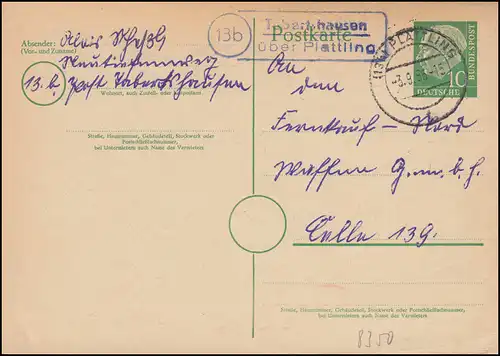 13b
Tabertshausen
über Plattling
Postkarte
Absender:
(Vor- und Zuname)
Alois
13.b Post Tabertshausen
Wohnort, auch Zustell- oder Leitpostamt
Straße, Hausnummer, Gebäudeteil, Stockwerk oder
Postschließfachnummer,
bei Untermietern auch Name des Vermieters
(13b) PLATTLING
-3.9.
10
DEUTSCHE
BUNDESPOST
An
den
Fernkauf - Nord
Waffen G.m.b.H.
Celle 139.
Straße, Hausnummer, Gebäudeteil, Stockwerk oder Postschließfachnummer,
bei Untermietern auch Name des Vermieters
8350